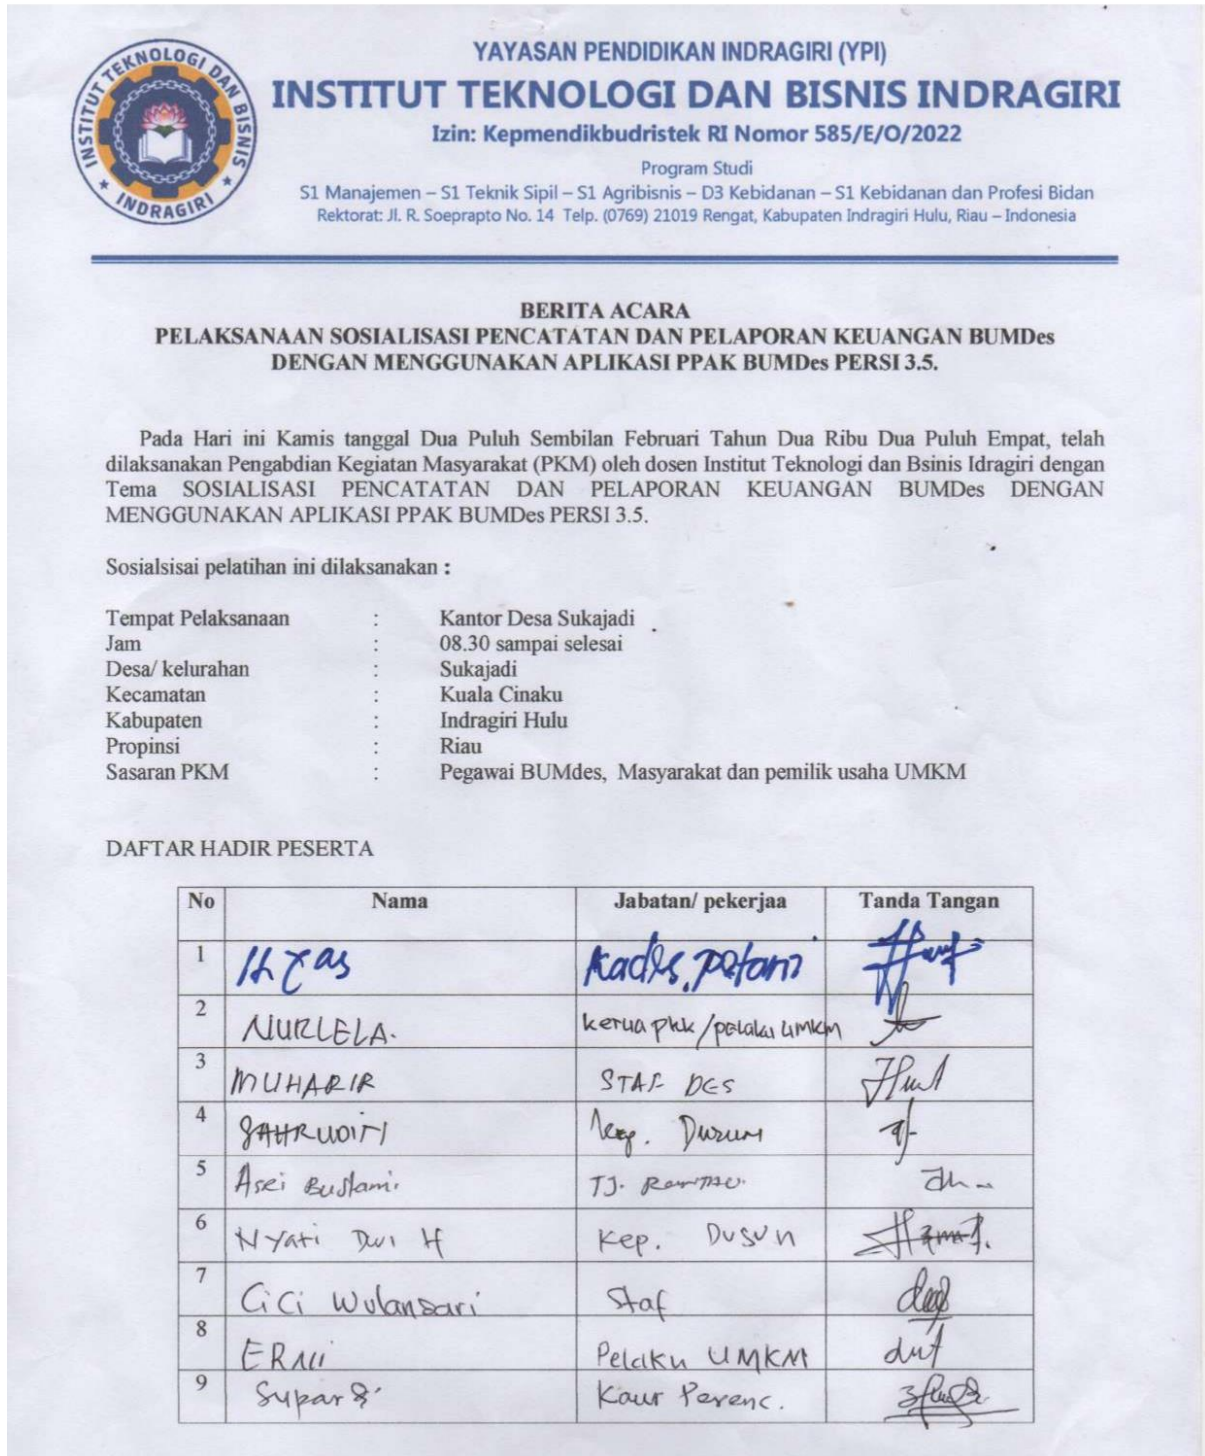 INSTITUT TEKNOLOGI DAN BISNIS
INDRAGIRI
YAYASAN PENDIDIKAN INDRAGIRI (YPI)
INSTITUT TEKNOLOGI DAN BISNIS INDRAGIRI
Izin: Kepmendikbudristek RI Nomor 585/E/O/2022
Program Studi
S1 Manajemen – S1 Teknik Sipil – S1 Agribisnis – D3 Kebidanan – S1 Kebidanan dan Profesi Bidan
Rektorat: Jl. R. Soeprapto No. 14 Telp. (0769) 21019 Rengat, Kabupaten Indragiri Hulu, Riau – Indonesia
BERITA ACARA
PELAKSANAAN SOSIALISASI PENCATATAN DAN PELAPORAN KEUANGAN BUMDes
DENGAN MENGGUNAKAN APLIKASI PPAK BUMDes PERSI 3.5.
Pada Hari ini Kamis tanggal Dua Puluh Sembilan Februari Tahun Dua Ribu Dua Puluh Empat, telah
dilaksanakan Pengabdian Kegiatan Masyarakat (PKM) oleh dosen Institut Teknologi dan Bsinis Idragiri dengan
Tema SOSIALISASI PENCATATAN DAN PELAPORAN KEUANGAN BUMDes DENGAN
MENGGUNAKAN APLIKASI PPAK BUMDes PERSI 3.5.
Sosialsisai pelatihan ini dilaksanakan :
Tempat Pelaksanaan : Kantor Desa Sukajadi
Jam : 08.30 sampai selesai
Desa/ kelurahan : Sukajadi
Kecamatan : Kuala Cinaku
Kabupaten : Indragiri Hulu
Propinsi : Riau
Sasaran PKM : Pegawai BUMdes, Masyarakat dan pemilik usaha UMKM
DAFTAR HADIR PESERTA
No Nama Jabatan/ pekerjaa Tanda Tangan
1 Kades, petani
2 NURLELA. Ketua pkk/pelaku UMKM
3 MUHARIR STAF DES
4 Kep. Dusun
5 Asei Bustami TJ.
6 Nyati Dwi H Kep. Dusun
7 CiCi Wulansari Staf
8 Pelaku UMKM
9 Supardi Kaur Perenc.